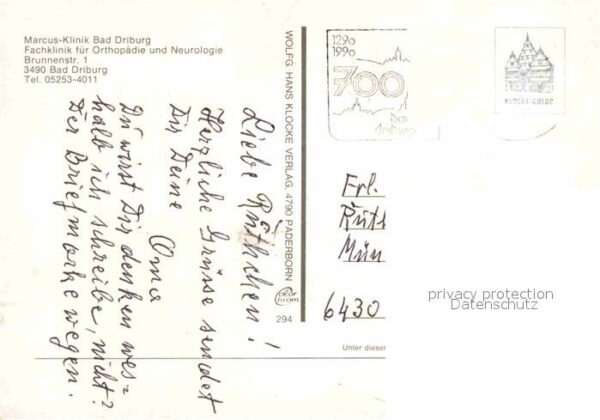 Marcus-Klinik Bad Driburg
Fachklinik für Orthopädie und Neurologie
Brunnenstr. 1
3490 Bad Driburg
Tel. 05253-4011
Liebe Rüthchen!
Herzliche Grüsse sendet
Dir Deine
Oma
Du wirst Dir denken wes=
halb ich schreibe, nicht?
Der Briefmarke wegen.
WOLFG. HANS KLOCKE VERLAG, 4790 PADERBORN
color
chrom
294
1290
1990
700
KLOCKE-COLOR
Frl.
Ruth
Mün
6430
privacy protection
Datenschutz
Unter dieser